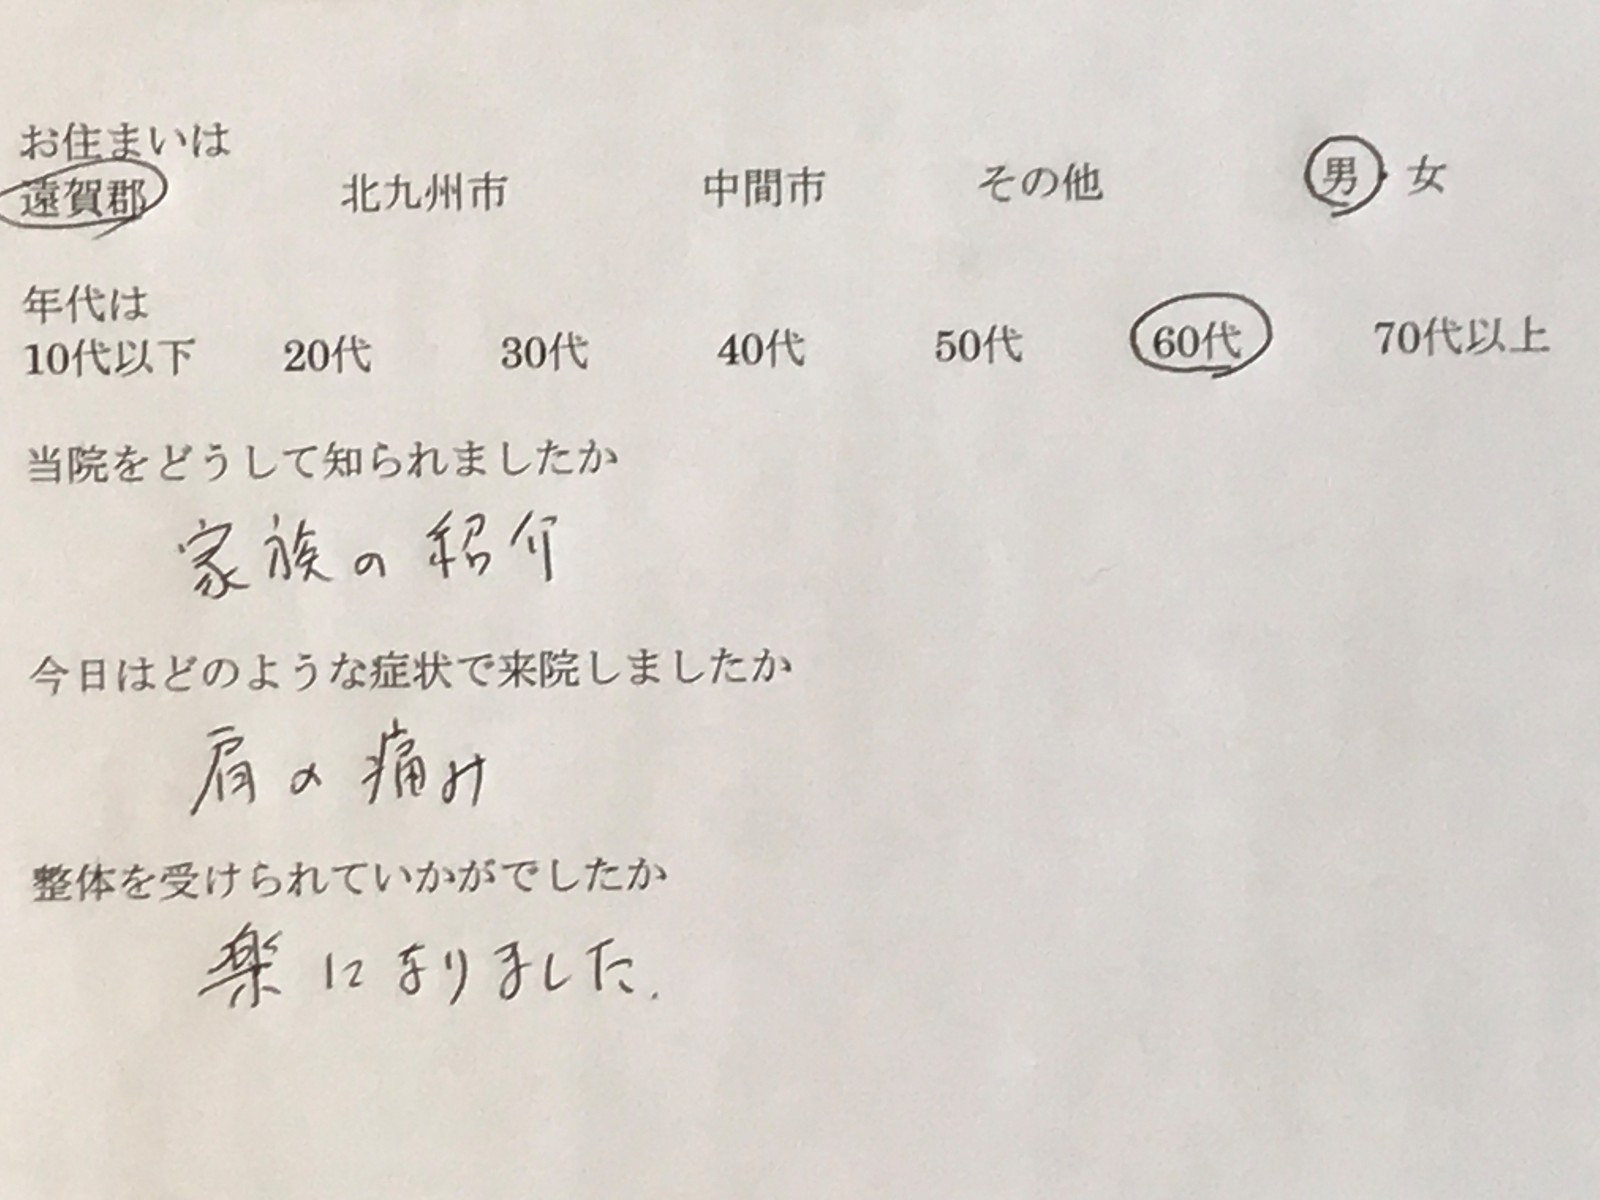 お住まいは
遠賀郡 北九州市 中間市 その他 男・女
年代は
10代以下 20代 30代 40代 50代 60代 70代以上
当院をどうして知られましたか
家族の紹介
今日はどのような症状で来院しましたか
肩の痛み
整体を受けられていかがでしたか
楽になりました.